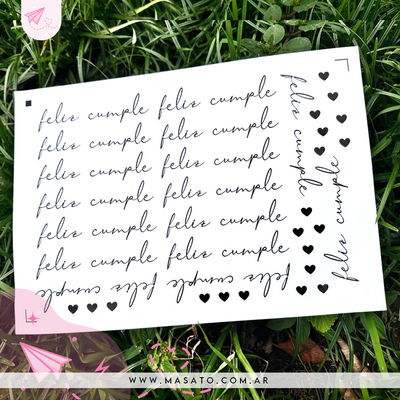 feliz cumple feliz cumple
feliz cumple feliz cumple
feliz cumple feliz cumple
feliz cumple feliz cumple
feliz cumple feliz cumple
feliz cumple feliz cumple
feliz cumple feliz cumple
feliz cumple
feliz cumple
WWW.MASATO.COM.AR